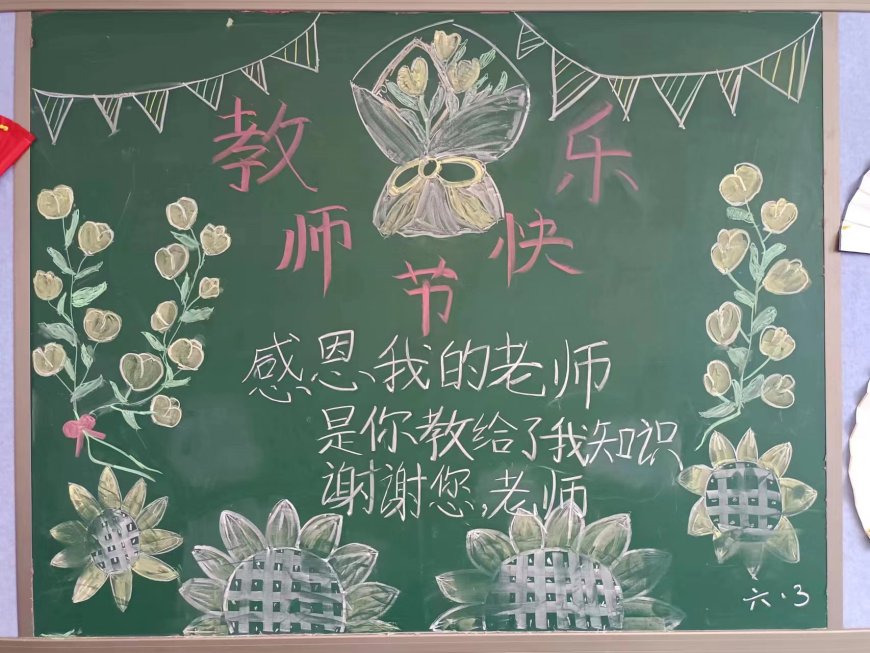 教师节快乐
感恩我的老师
是你教给了我知识
谢谢您,老师
六.3